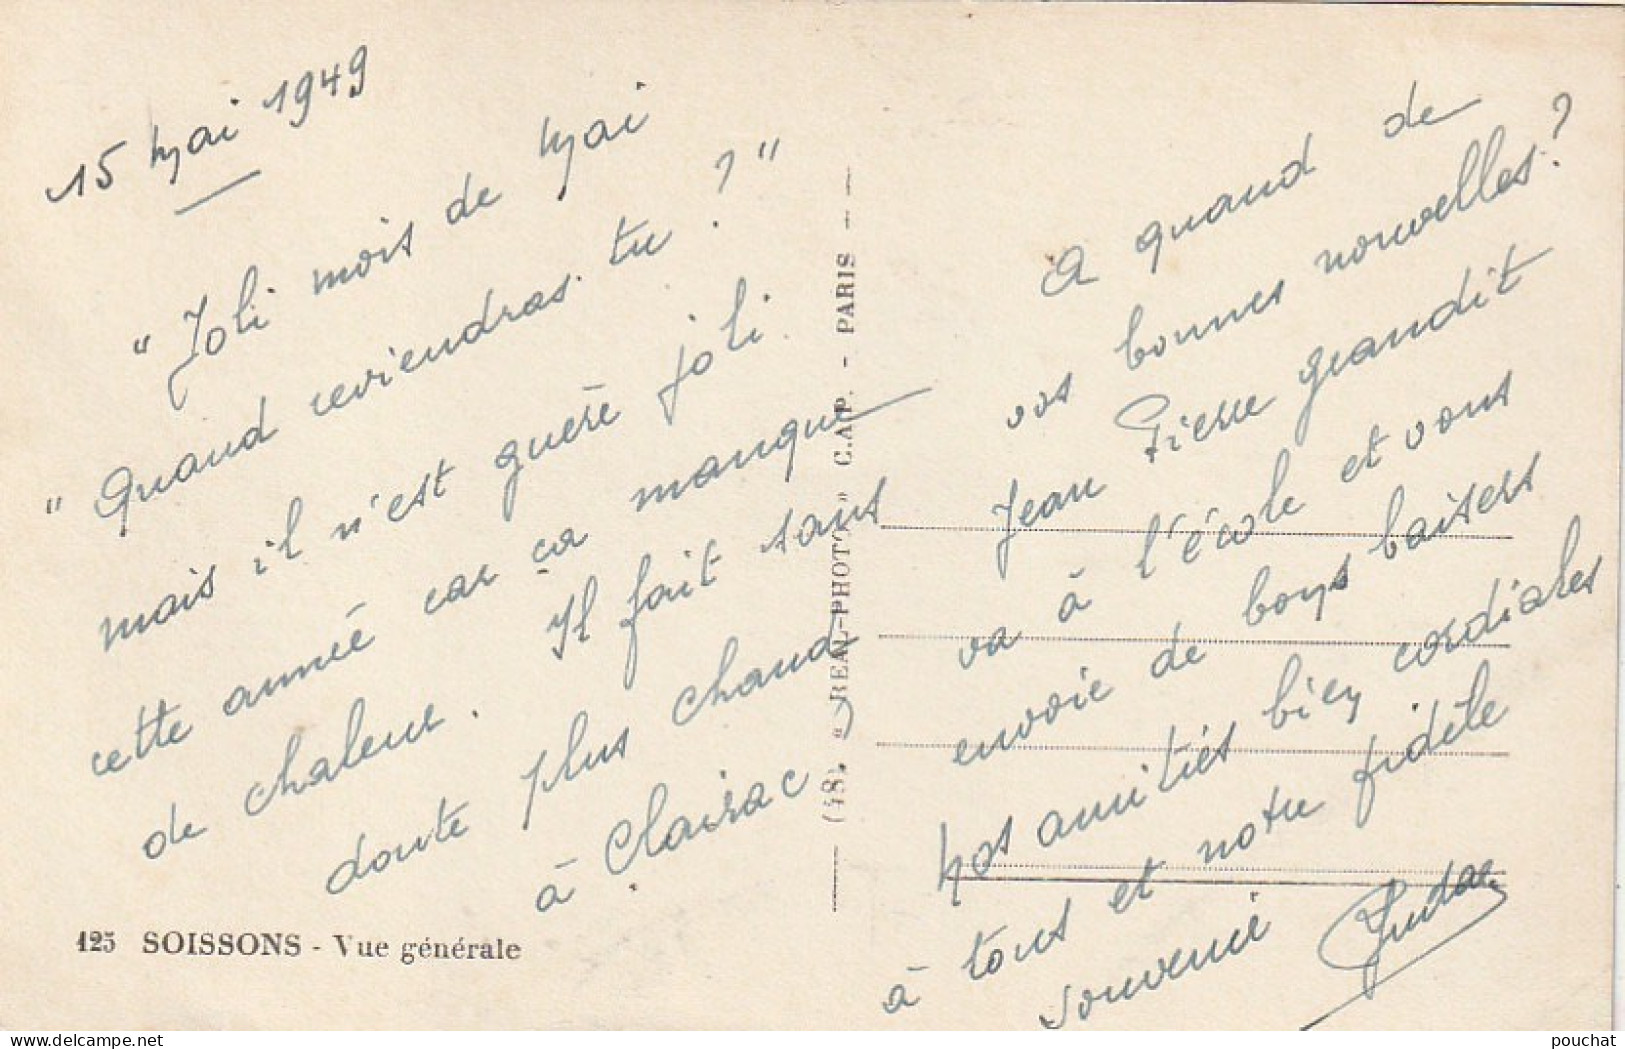 15 Mai 1949
" Joli mois de Mai
" Quand reviendras tu ? "
mais il n'est guère joli
cette année car ça manque
de chaleur. Il fait sans
doute plus chaud
à Clairac
125 SOISSONS - Vue générale
(48). « REAL-PHOTO » C.A.P. - PARIS
A quand de
vos bonnes nouvelles ?
Jean Pierre grandit
va à l'école et vous
envoie de bons baisers
Nos amitiés bien cordiales
à tous et notre fidèle
souvenir
www.delcampe.net
pouchat